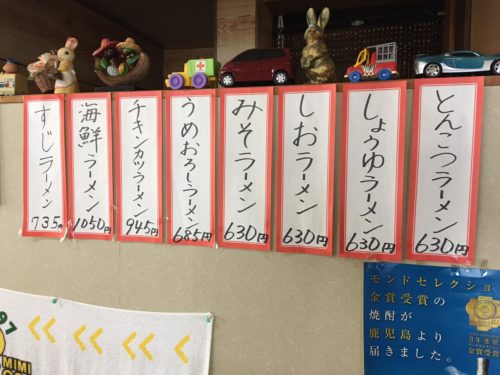 とんこつラーメン
630円
しょうゆラーメン
630円
しおラーメン
630円
みそラーメン
630円
うめおろしラーメン
685円
チキンカツラーメン
945円
海鮮ラーメン
1050円
すじラーメン
735円
モンドセレクショ
金賞受賞の
焼酎が
鹿児島より
届きました。
3年連続
金賞受賞
97
MIMI